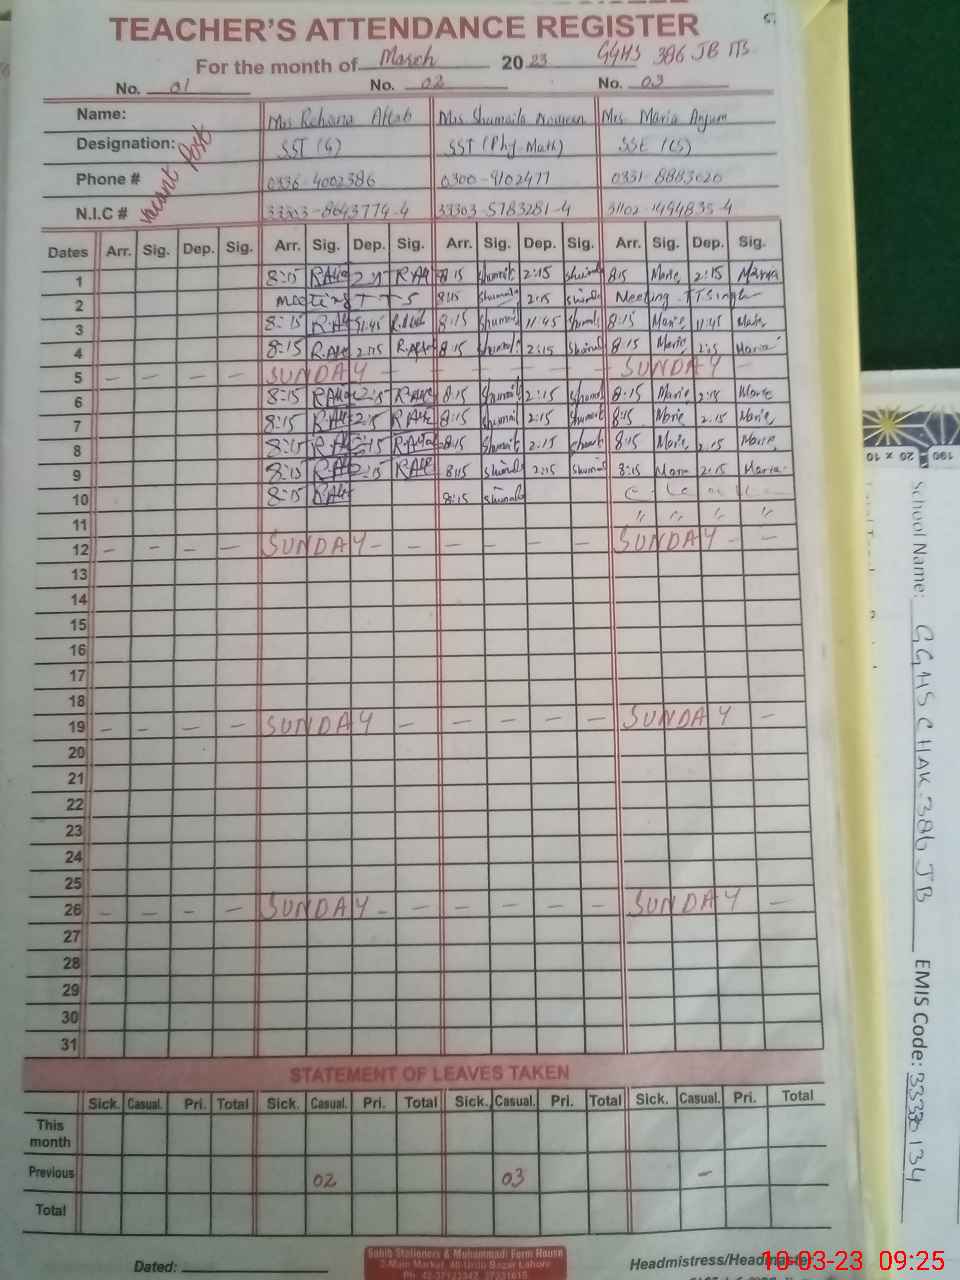 TEACHER'S ATTENDANCE REGISTER
For the month of March 2023 GGHS 386 JB TTS
No. 01 No. 02 No. 03
Name: Mrs Rehana Aftab Mrs Shumaila Noureen Mrs Maria Anjum
Designation: Vacant Post SST (G) SST (Phy-Math) SSE (CS)
Phone # 0336-4002386 0300-9102477 0331-8883020
N.I.C # 33303-8643774-4 33303-5783281-4 31102-1494835-4
Dates Arr. Sig. Dep. Sig. Arr. Sig. Dep. Sig. Arr. Sig. Dep. Sig. Arr. Sig. Dep. Sig.
1 8:15 2:15 8:15 2:15 8:15 Maria 2:15 Maria
2 Meeting TTS 8:15 2:15 Meeting TTSingh
3 8:15 11:45 8:15 11:45 8:15 Maria 11:45
4 8:15 2:15 8:15 2:15 8:15 Maria 2:15 Maria
5 - - - - SUNDAY - - - - - SUNDAY -
6 8:15 2:15 8:15 2:15 8:15 Maria 2:15 Maria
7 8:15 2:15 8:15 2:15 8:15 Maria 2:15 Maria
8 8:15 2:15 8:15 2:15 8:15 Maria 2:15 Maria
9 8:15 2:15 8:15 2:15 8:15 Maria 2:15 Maria
10 8:15 8:15
11 " " " "
12 - - - - SUNDAY - - - - - SUNDAY - -
13
14
15
16
17
18
19 - - - - SUNDAY - - - - - SUNDAY -
20
21
22
23
24
25
26 - - - - SUNDAY - - - - - SUNDAY -
27
28
29
30
31
STATEMENT OF LEAVES TAKEN
Sick. Casual. Pri. Total Sick. Casual. Pri. Total Sick. Casual. Pri. Total Sick. Casual. Pri. Total
This month
Previous 02 03 -
Total
Sahib Stationers & Muhammadi Form House
2-Main Market, 40-Urdu Bazar Lahore
Dated: Headmistress/Headmaster
School Name: GGHS CHAK 386 JB EMIS Code: 33330134
10-03-23 09:25